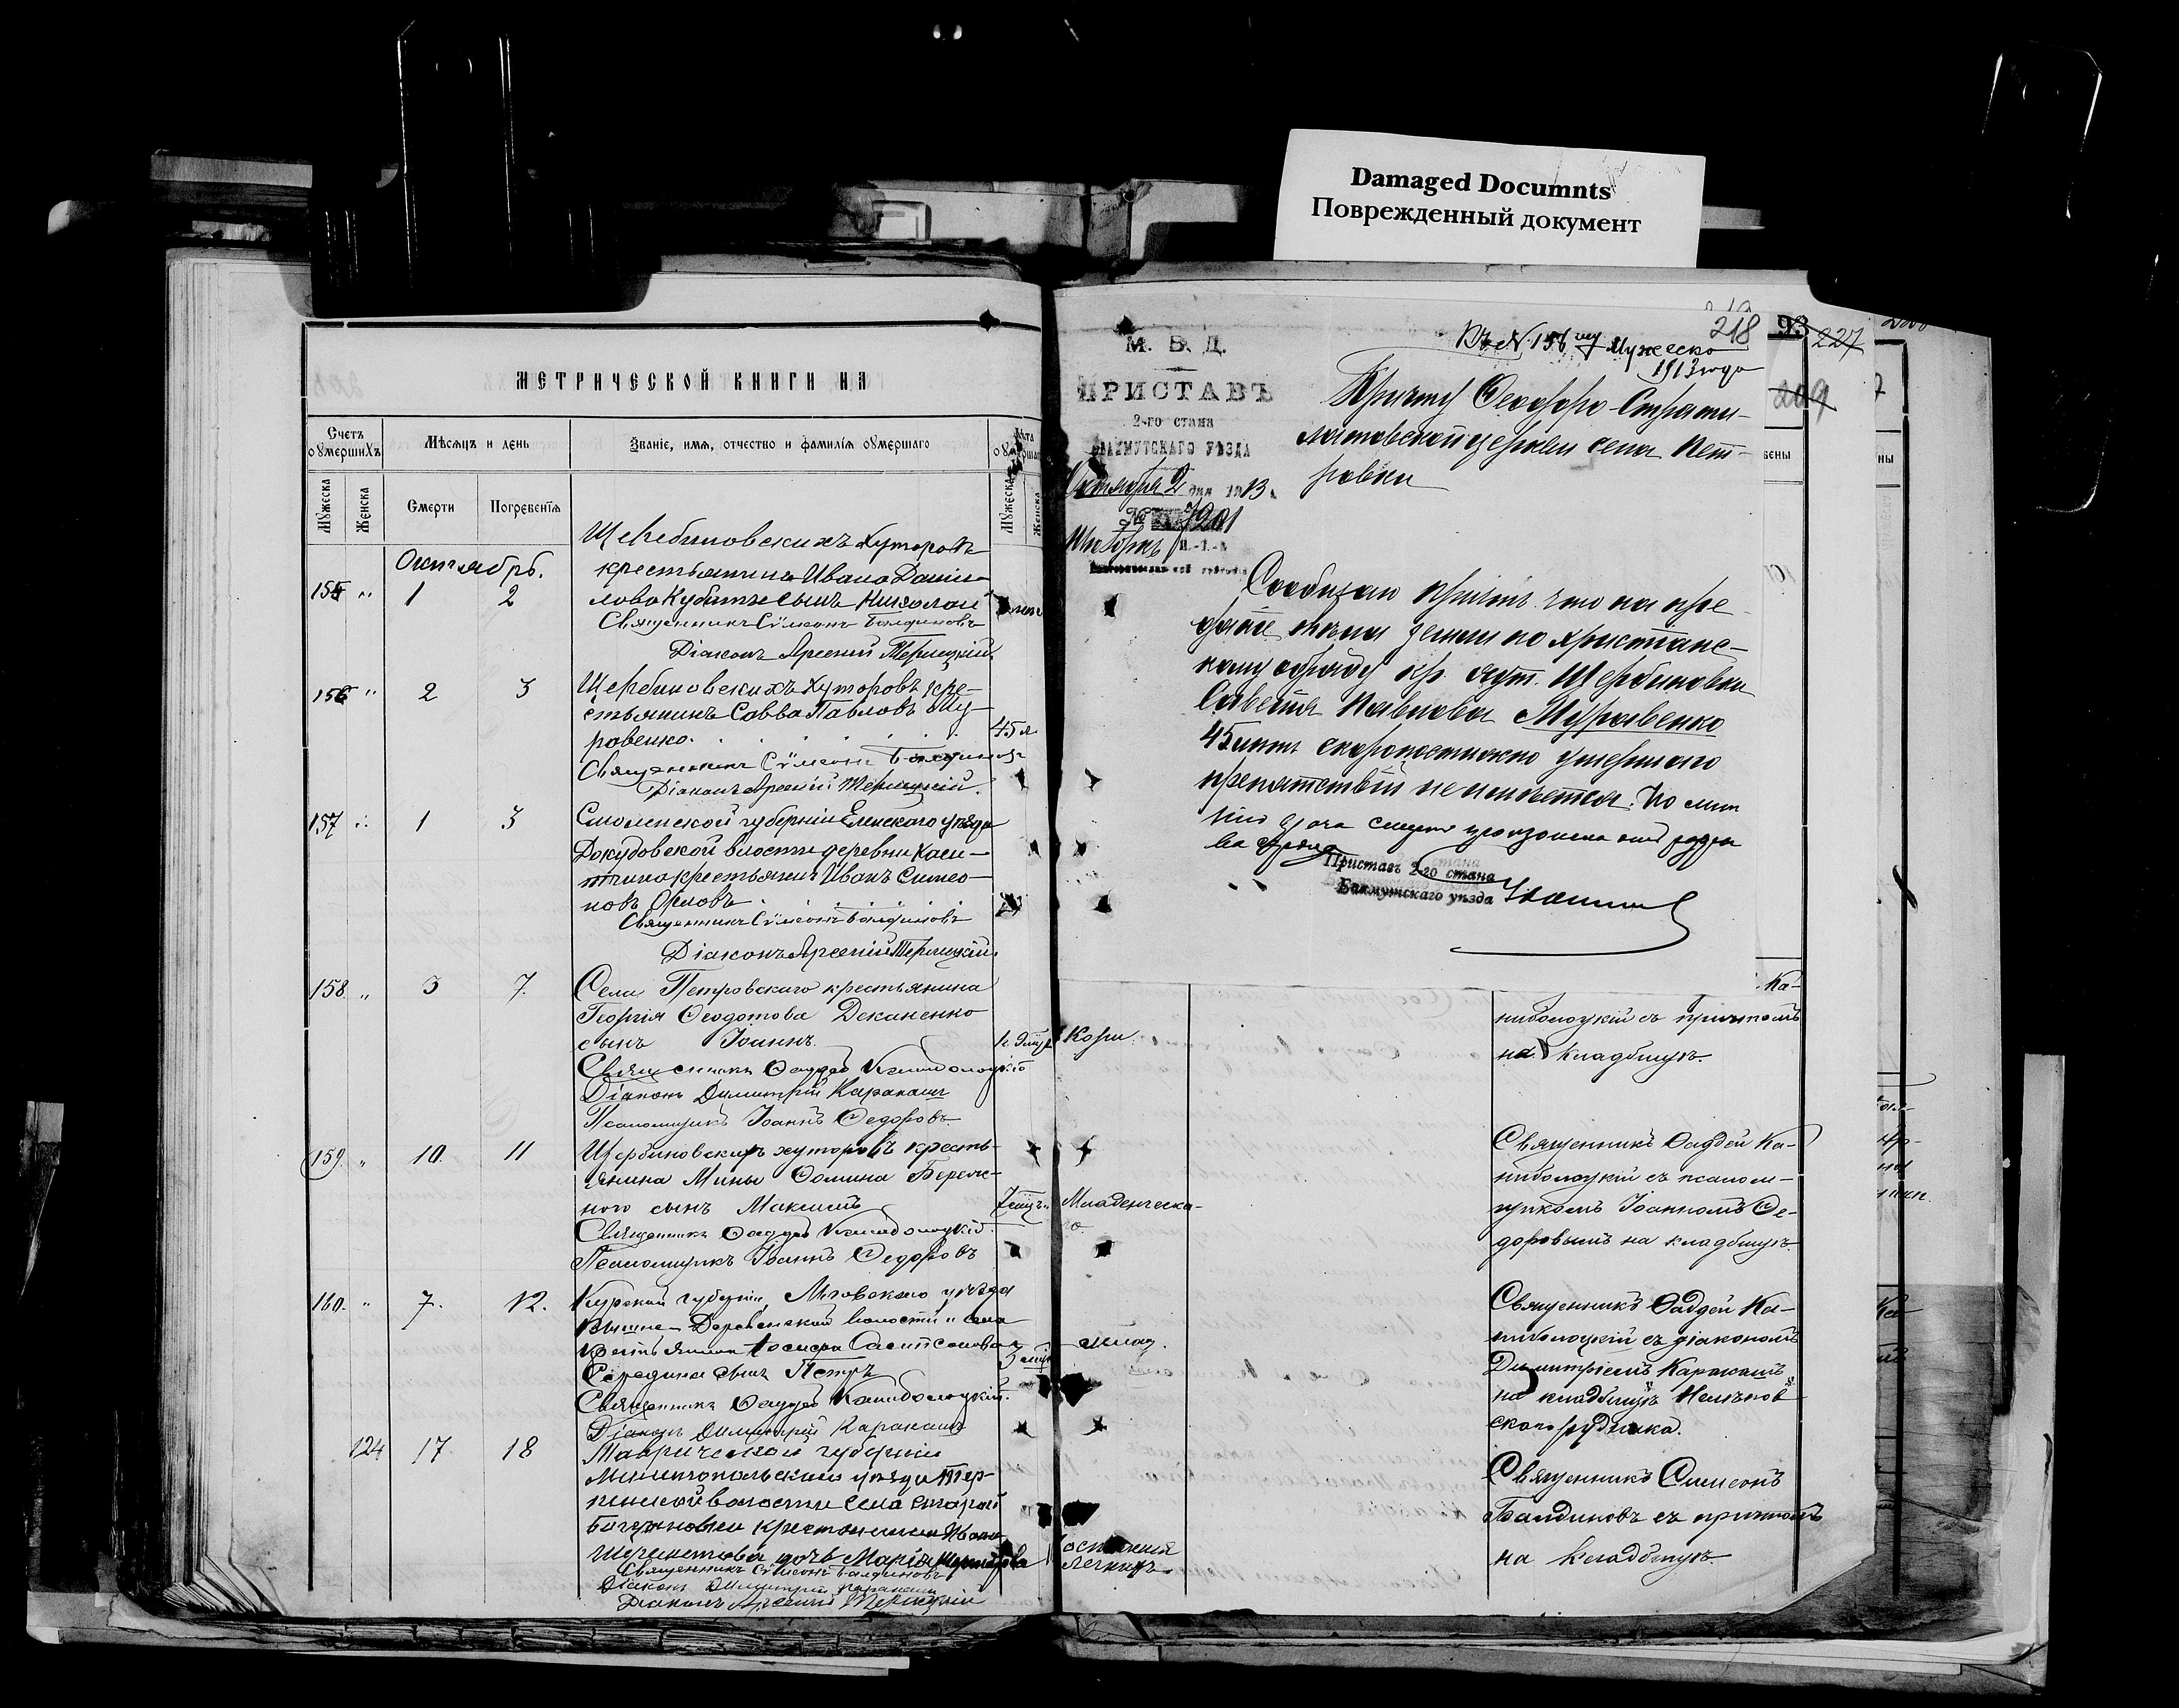 Damaged Documnts
Поврежденный документ
МЕТРИЧЕСКОЙ КНИГИ НА
Счетъ
оумершихъ
Мѣсяцъ и день
Званіе, имя, отчество и фамилія оумершаго
Лѣта
Мужеска
Женска
Смерти
Погребенія
Мужеска
Женска
Октябрь.
Щербиновскихъ хуторовъ
155 " 1 2
крестьянина Ивана Дании-
лова сынъ Николай
Священникъ Сѵмеонъ Балдиновъ
Діаконъ Арсеній Терлецкій
156 " 2 3
Щербиновскихъ хуторовъ кре-
стьянинъ Савва Павловъ Му-
равенко. 45 л
Священникъ Сѵмеонъ Балдиновъ
Діаконъ Арсеній Терлецкій.
157 " 1 3
Смоленской губерніи Еленскаго уѣзда
Докудовской волости деревни
крестьянинъ Иванъ Симео-
новъ Орловъ
Священникъ Сѵмеонъ Балдиновъ
Діаконъ Арсеній Терлецкій
158 " 3 7.
Села Петровскаго крестьянина
Георгія Ѳеодотова Деканенко
сынъ Іоаннъ.
Священникъ Ѳаддей
Діаконъ Димитрій Каракашъ
Псаломщикъ Іоаннъ Ѳедоровъ
159. " 10. 11
Щербиновскихъ хуторовъ кресть-
янина Мины Ѳомина Береж-
ного сынъ Максимъ
Священникъ Ѳаддей
Псаломщикъ Іоаннъ Ѳедоровъ
160. " 7. 12.
Курской губерніи, Льговскаго уѣзда
Деревенской волости села
Середина сынъ Петръ
Священникъ Ѳаддей
Діаконъ Димитрій Каракашъ
124 17 18
Таврической губерніи
Мелитопольскаго уѣзда Тер-
пеньской волости села Старой
Богдановки крестьянина Ивана
Шереметова дочь Марія
Священникъ Сѵмеонъ Балдиновъ
Діаконъ Димитрій Каракашъ
Діаконъ Арсеній Терлецкій
218
93
227
209
Къ № 156 му Мужеска
1913 года
М. В. Д.
ПРИСТАВЪ
2-го стана
БАХМУТСКАГО УѢЗДА
Октября 2 дня 1913 г.
№ 7201
Причту Ѳеодоро-Страти-
латовской церкви села Пет-
ровки
Сообщаю причту что на пре-
даніе тѣла земли по христіанс-
кому обряду кр. хут. Щербиновки
Саветія Павлова Муравенко
45 лѣтъ скоропостижно умершаго
препятствій не имѣется. По мнѣ
нію врача смерть произошла отъ
ва сердца
Приставъ 2-го стана
Бахмутскаго уѣзда
Ка-
съ причтомъ
на кладбищѣ.
Кори.
Священникъ Ѳаддей Ка-
съ псалом-
щикомъ Іоанномъ Ѳе-
доровымъ на кладбищѣ.
Младенческа-
го.
Священникъ Ѳаддей Ка-
съ діакономъ
Димитріемъ Каракашъ
на кладбищѣ Нелѣпов-
скаго рудника.
Священникъ Симеонъ
Балдиновъ съ причтомъ
на кладбищѣ.